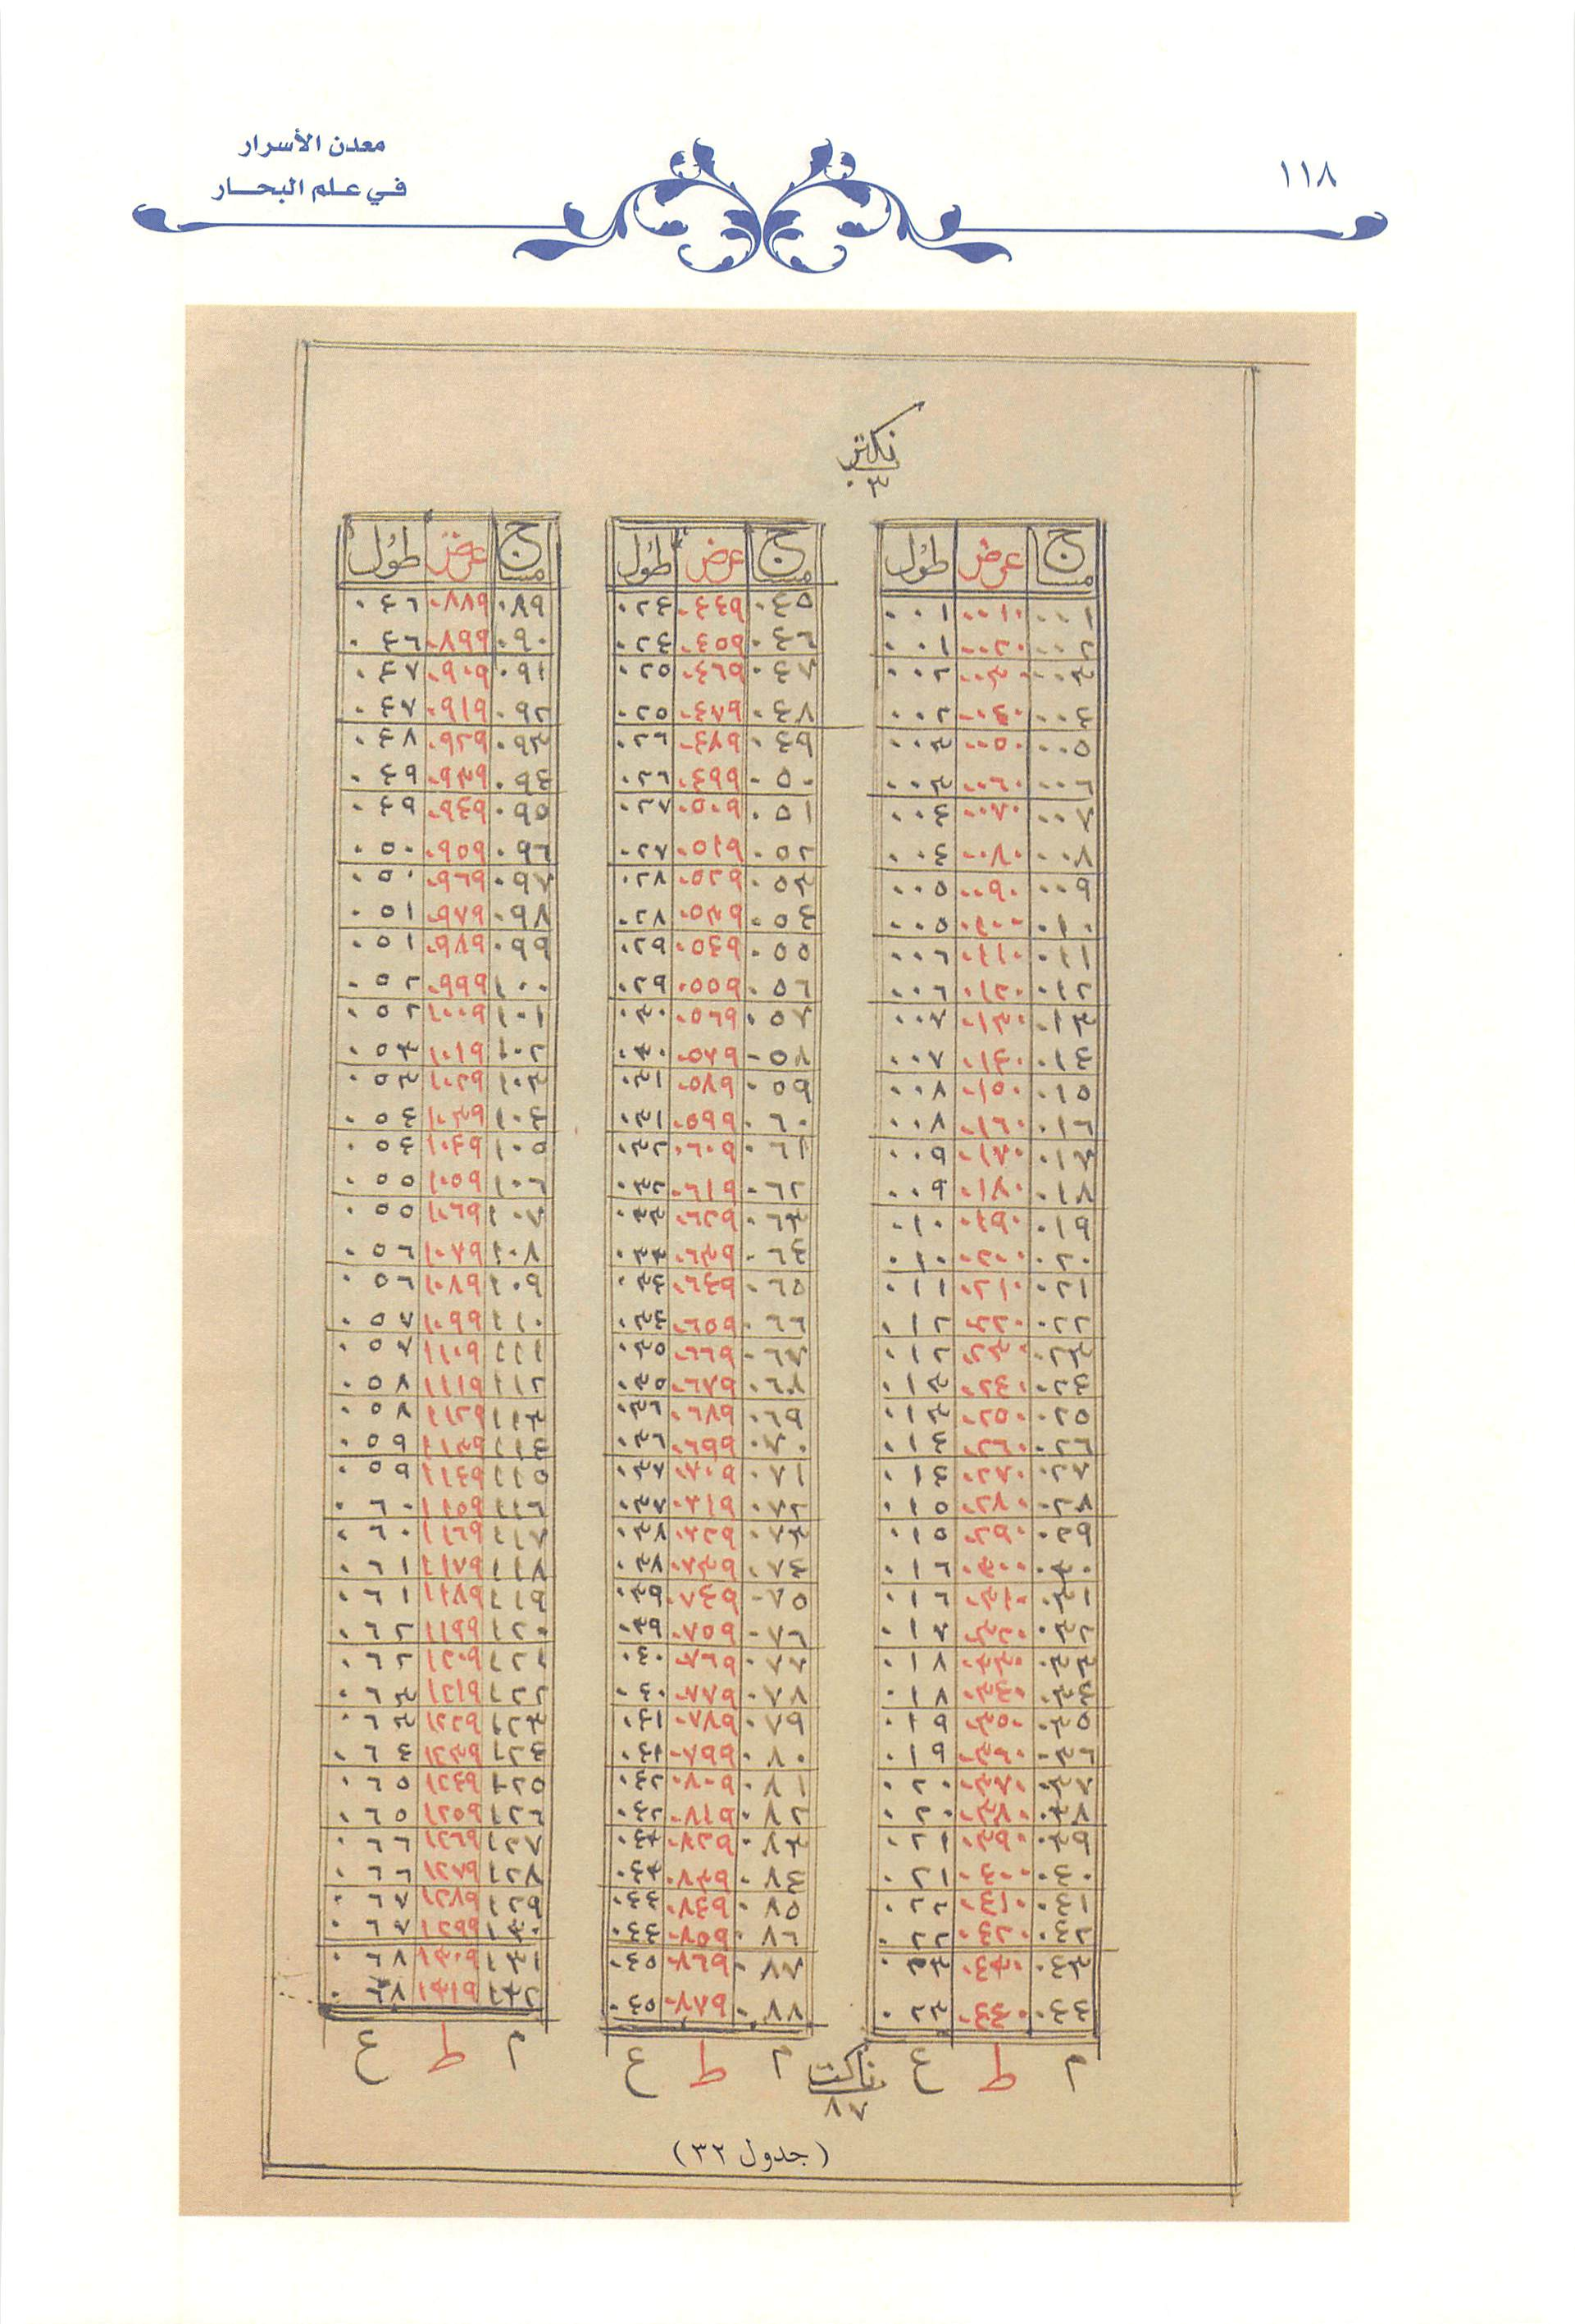 ١١٨
معدن الأسرار
في علم البحار
نكتر
٠٣
مساج عرض طول
٠٠١ ٠٠١٠ ٠٠١
٠٠٢ ٠٠٢٠ ٠٠١
٠٠٣ ٠٠٣٠ ٠٠٢
٠٠٤ ٠٠٤٠ ٠٠٢
٠٠٥ ٠٠٥٠ ٠٠٣
٠٠٦ ٠٠٦٠ ٠٠٣
٠٠٧ ٠٠٧٠ ٠٠٤
٠٠٨ ٠٠٨٠ ٠٠٤
٠٠٩ ٠٠٩٠ ٠٠٥
٠١٠ ٠١٠٠ ٠٠٥
٠١١ ٠١١٠ ٠٠٦
٠١٢ ٠١٢٠ ٠٠٦
٠١٣ ٠١٣٠ ٠٠٧
٠١٤ ٠١٤٠ ٠٠٧
٠١٥ ٠١٥٠ ٠٠٨
٠١٦ ٠١٦٠ ٠٠٨
٠١٧ ٠١٧٠ ٠٠٩
٠١٨ ٠١٨٠ ٠٠٩
٠١٩ ٠١٩٠ ٠١٠
٠٢٠ ٠٢٠٠ ٠١٠
٠٢١ ٠٢١٠ ٠١١
٠٢٢ ٠٢٢٠ ٠١٢
٠٢٣ ٠٢٣٠ ٠١٢
٠٢٤ ٠٢٤٠ ٠١٣
٠٢٥ ٠٢٥٠ ٠١٣
٠٢٦ ٠٢٦٠ ٠١٤
٠٢٧ ٠٢٧٠ ٠١٤
٠٢٨ ٠٢٨٠ ٠١٥
٠٢٩ ٠٢٩٠ ٠١٥
٠٣٠ ٠٣٠٠ ٠١٦
٠٣١ ٠٣١٠ ٠١٦
٠٣٢ ٠٣٢٠ ٠١٧
٠٣٣ ٠٣٣٠ ٠١٨
٠٣٤ ٠٣٤٠ ٠١٨
٠٣٥ ٠٣٥٠ ٠١٩
٠٣٦ ٠٣٦٠ ٠١٩
٠٣٧ ٠٣٧٠ ٠٢٠
٠٣٨ ٠٣٨٠ ٠٢٠
٠٣٩ ٠٣٩٠ ٠٢١
٠٤٠ ٠٤٠٠ ٠٢١
٠٤١ ٠٤١٠ ٠٢٢
٠٤٢ ٠٤٢٠ ٠٢٢
٠٤٣ ٠٤٣٠ ٠٢٣
٠٤٤ ٠٤٤٠ ٠٢٣
م ط ع
مساج عرض طول
٠٤٥ ٠٤٤٩ ٠٢٤
٠٤٦ ٠٤٥٩ ٠٢٤
٠٤٧ ٠٤٦٩ ٠٢٥
٠٤٨ ٠٤٧٩ ٠٢٥
٠٤٩ ٠٤٨٩ ٠٢٦
٠٥٠ ٠٤٩٩ ٠٢٦
٠٥١ ٠٥٠٩ ٠٢٧
٠٥٢ ٠٥١٩ ٠٢٧
٠٥٣ ٠٥٢٩ ٠٢٨
٠٥٤ ٠٥٣٩ ٠٢٨
٠٥٥ ٠٥٤٩ ٠٢٩
٠٥٦ ٠٥٥٩ ٠٢٩
٠٥٧ ٠٥٦٩ ٠٣٠
٠٥٨ ٠٥٧٩ ٠٣٠
٠٥٩ ٠٥٨٩ ٠٣١
٠٦٠ ٠٥٩٩ ٠٣١
٠٦١ ٠٦٠٩ ٠٣٢
٠٦٢ ٠٦١٩ ٠٣٢
٠٦٣ ٠٦٢٩ ٠٣٣
٠٦٤ ٠٦٣٩ ٠٣٣
٠٦٥ ٠٦٤٩ ٠٣٤
٠٦٦ ٠٦٥٩ ٠٣٤
٠٦٧ ٠٦٦٩ ٠٣٥
٠٦٨ ٠٦٧٩ ٠٣٥
٠٦٩ ٠٦٨٩ ٠٣٦
٠٧٠ ٠٦٩٩ ٠٣٦
٠٧١ ٠٧٠٩ ٠٣٧
٠٧٢ ٠٧١٩ ٠٣٧
٠٧٣ ٠٧٢٩ ٠٣٨
٠٧٤ ٠٧٣٩ ٠٣٨
٠٧٥ ٠٧٤٩ ٠٣٩
٠٧٦ ٠٧٥٩ ٠٣٩
٠٧٧ ٠٧٦٩ ٠٤٠
٠٧٨ ٠٧٧٩ ٠٤٠
٠٧٩ ٠٧٨٩ ٠٤١
٠٨٠ ٠٧٩٩ ٠٤١
٠٨١ ٠٨٠٩ ٠٤٢
٠٨٢ ٠٨١٩ ٠٤٢
٠٨٣ ٠٨٢٩ ٠٤٣
٠٨٤ ٠٨٣٩ ٠٤٣
٠٨٥ ٠٨٤٩ ٠٤٤
٠٨٦ ٠٨٥٩ ٠٤٤
٠٨٧ ٠٨٦٩ ٠٤٥
٠٨٨ ٠٨٧٩ ٠٤٥
م ط ع
مساج عرض طول
٠٨٩ ٠٨٨٩ ٠٤٦
٠٩٠ ٠٨٩٩ ٠٤٦
٠٩١ ٠٩٠٩ ٠٤٧
٠٩٢ ٠٩١٩ ٠٤٧
٠٩٣ ٠٩٢٩ ٠٤٨
٠٩٤ ٠٩٣٩ ٠٤٩
٠٩٥ ٠٩٤٩ ٠٤٩
٠٩٦ ٠٩٥٩ ٠٥٠
٠٩٧ ٠٩٦٩ ٠٥٠
٠٩٨ ٠٩٧٩ ٠٥١
٠٩٩ ٠٩٨٩ ٠٥١
١٠٠ ٠٩٩٩ ٠٥٢
١٠١ ١٠٠٩ ٠٥٢
١٠٢ ١٠١٩ ٠٥٣
١٠٣ ١٠٢٩ ٠٥٣
١٠٤ ١٠٣٩ ٠٥٤
١٠٥ ١٠٤٩ ٠٥٤
١٠٦ ١٠٥٩ ٠٥٥
١٠٧ ١٠٦٩ ٠٥٥
١٠٨ ١٠٧٩ ٠٥٦
١٠٩ ١٠٨٩ ٠٥٦
١١٠ ١٠٩٩ ٠٥٧
١١١ ١١٠٩ ٠٥٧
١١٢ ١١١٩ ٠٥٨
١١٣ ١١٢٩ ٠٥٨
١١٤ ١١٣٩ ٠٥٩
١١٥ ١١٤٩ ٠٥٩
١١٦ ١١٥٩ ٠٦٠
١١٧ ١١٦٩ ٠٦٠
١١٨ ١١٧٩ ٠٦١
١١٩ ١١٨٩ ٠٦١
١٢٠ ١١٩٩ ٠٦٢
١٢١ ١٢٠٩ ٠٦٢
١٢٢ ١٢١٩ ٠٦٣
١٢٣ ١٢٢٩ ٠٦٣
١٢٤ ١٢٣٩ ٠٦٤
١٢٥ ١٢٤٩ ٠٦٥
١٢٦ ١٢٥٩ ٠٦٥
١٢٧ ١٢٦٩ ٠٦٦
١٢٨ ١٢٧٩ ٠٦٦
١٢٩ ١٢٨٩ ٠٦٧
١٣٠ ١٢٩٩ ٠٦٧
١٣١ ١٣٠٩ ٠٦٨
١٣٢ ١٣١٩ ٠٦٨
م ط ع
ناكت
٨٧
(جدول ٣٢)